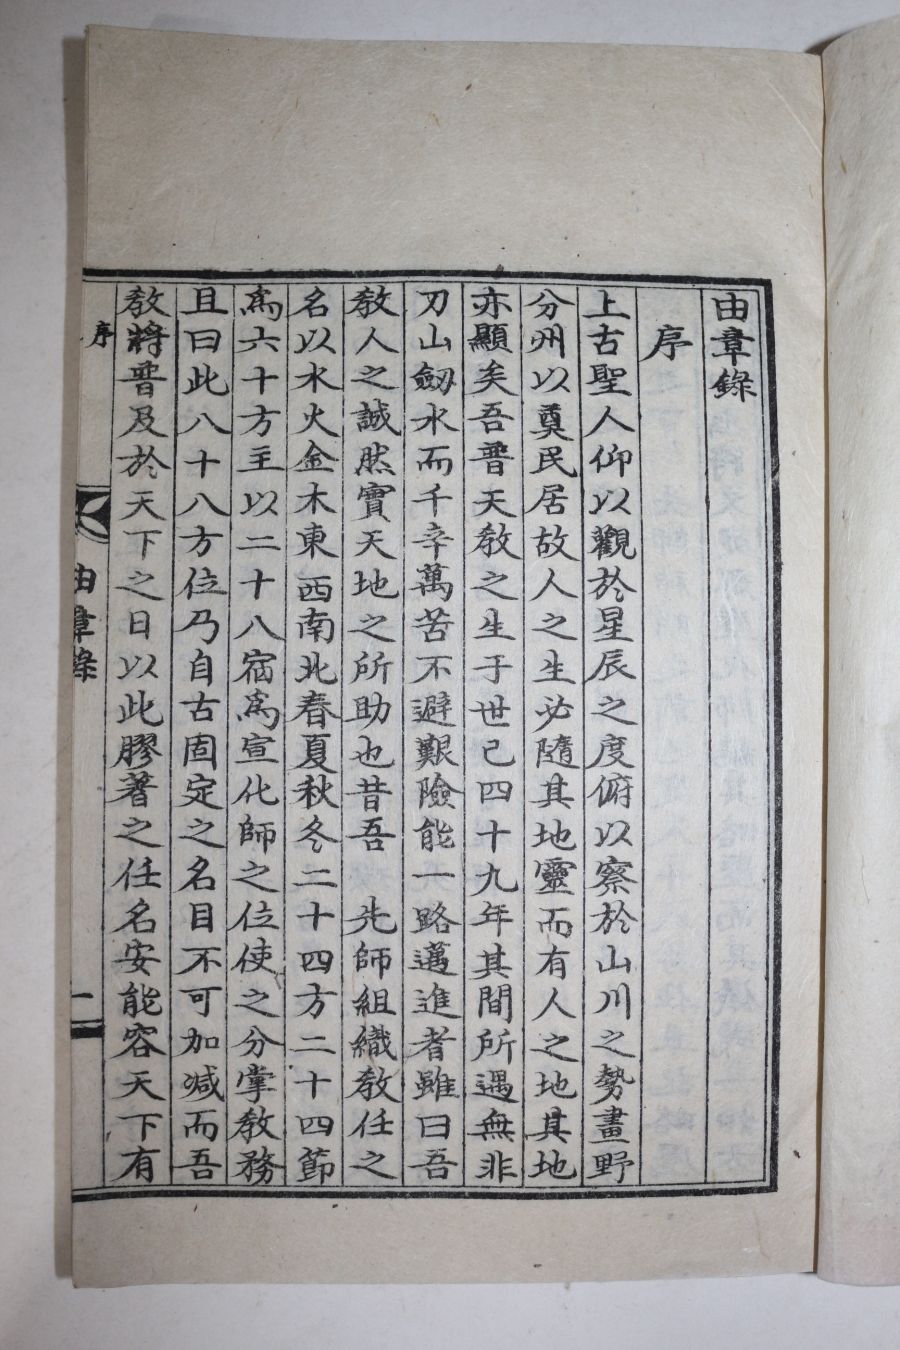 由章錄
序
上古聖人仰以觀於星辰之度俯以察於山川之勢畫野
分州以奠民居故人之生必隨其地靈而有人之地其地
亦顯矣吾普天敎之生于世已四十九年其間所遇無非
刃山劒水而千辛萬苦不避艱險能一路邁進者雖曰吾
敎人之誠然實天地之所助也昔吾 先師組織敎任之
名以水火金木東西南北春夏秋冬二十四方二十四節
爲六十方主以二十八宿爲宣化師之位使之分掌敎務
且曰此八十八方位乃自古固定之名目不可加減而吾
敎將普及於天下之日以此膠著之任名安能容天下有
序
由章錄
一